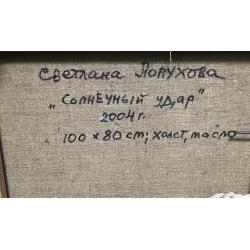 Светлана Лопухова
„Солнечный удар"
2004 г.
100 х 80 cm; холст, масло